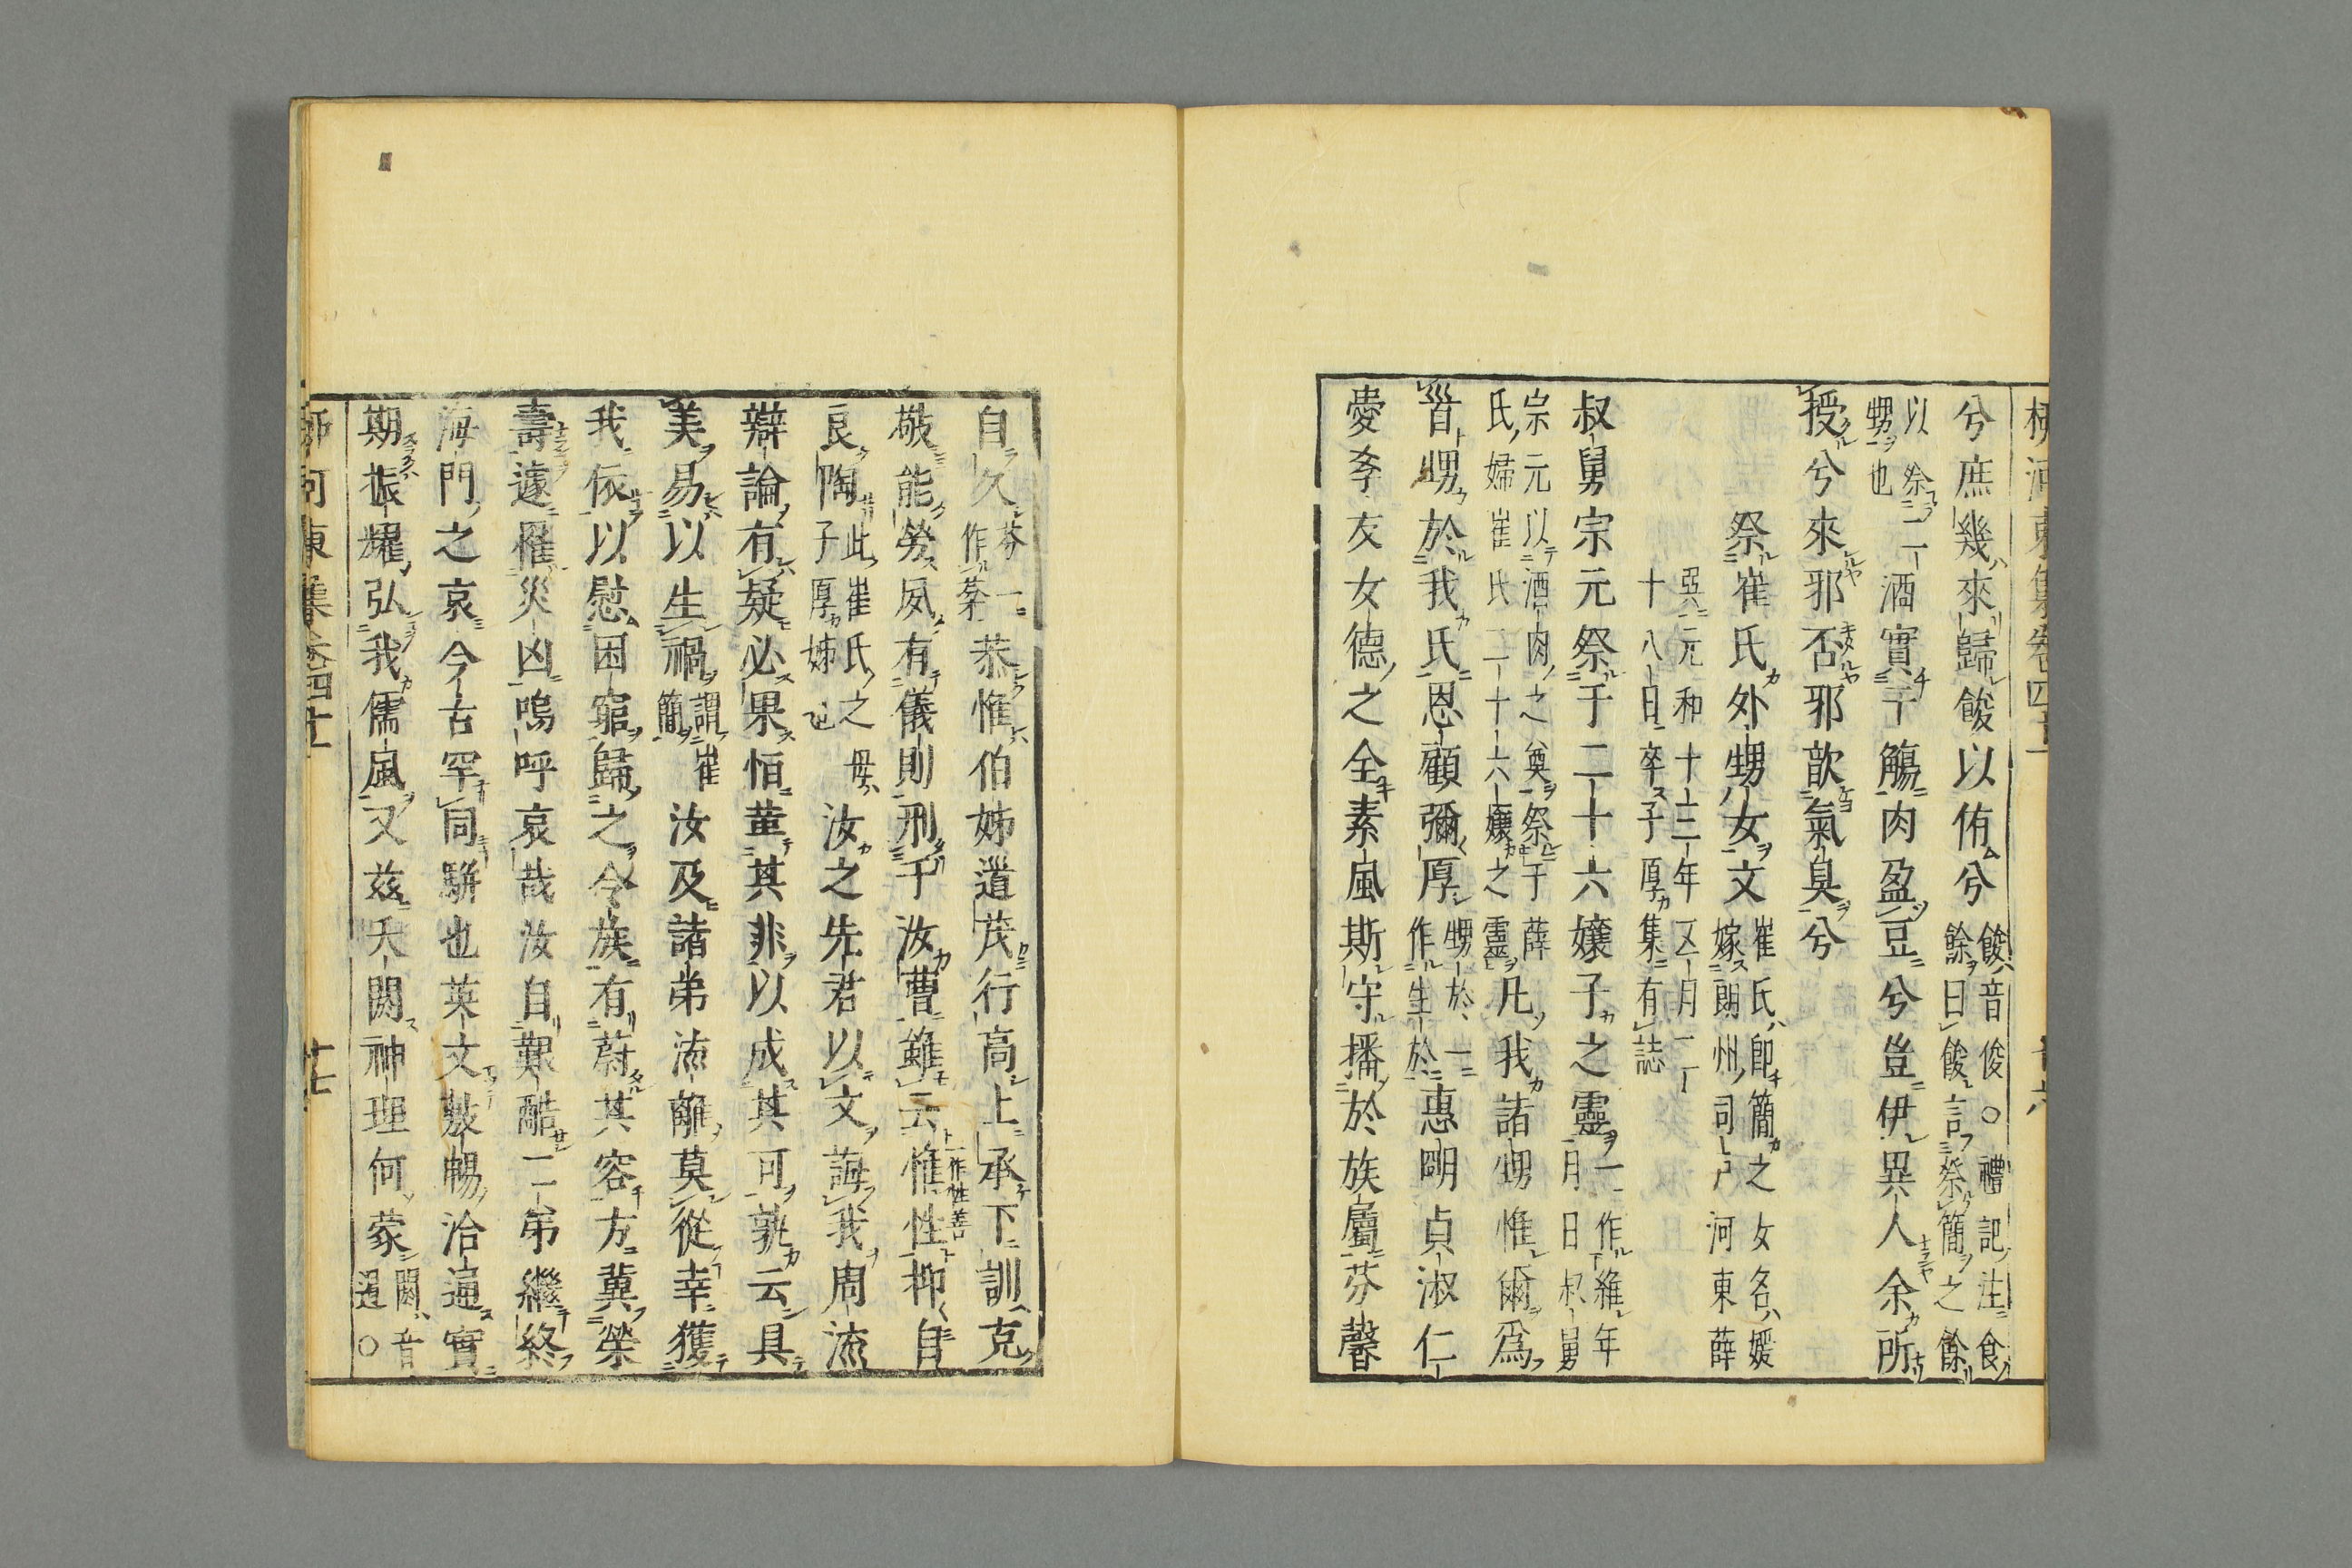 柳河東集卷四十一
兮庶幾來歸餕以侑兮餕音俊○禮記注食餘曰餕言祭簡之餘
以祭甥也二酒實于觴肉盈豆兮豈伊異人余所
授兮來邪否邪歆氣臭兮
祭崔氏外甥女文崔氏即簡之女名媛嫁朗州司戶河東薛
巽元和十二年五月二十八日卒子厚集有誌
叔舅宗元祭于二十六孃子之靈一作維年月日叔舅
宗元以酒肉之奠祭于薛氏婦崔氏二十六孃之靈凡我諸甥惟爾爲
首甥於我氏恩顧彌厚甥於一作生於惠明貞淑仁
愛孝友女德之全素風斯守播於族屬芬馨
自久芬一作蒸恭惟伯姊道茂行高上承下訓克
敬能勞夙有儀則刑于汝曹雖云惟性抑自
一作性善
良陶此崔氏之母子厚姊也汝之先君以文誨我周流
辯論有疑必果恒董其非以成其可孰云具
美易以生禍謂崔簡汝及諸弟流離莫從幸獲
我依以慰困窮歸之令族有蔚其容方冀榮
壽遽罹災凶嗚呼哀哉汝自艱酷二弟繼終
海門之哀今古罕同駢也英文敖暢洽逼實
期振耀弘我儒風又茲夭閼神理何蒙閼音遏○
柳河東集卷四十一
廿七